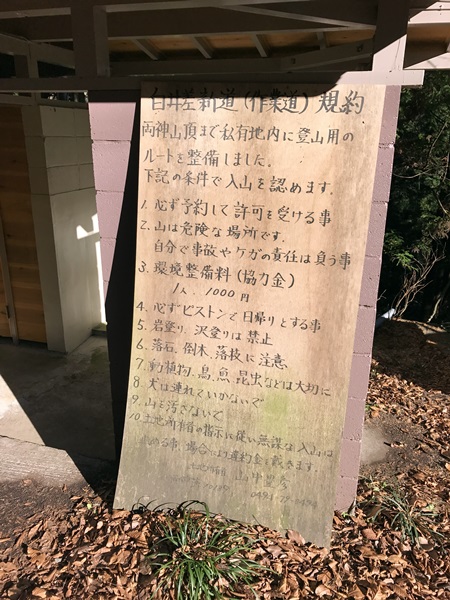 白井差新道(作業道)規約
両神山頂まで私有地内に登山用の
ルートを整備しました。
下記の条件で入山を認めます。
1. 必ず予約して許可を受ける事
2. 山は危険な場所です。
自分で事故やケガの責任は負う事
3. 環境整備料(協力金)
1人. 1000円
4. 必ずピストンで日帰りとする事
5. 岩登り.沢登りは禁止
6. 落石.倒木.落枝に注意
7. 動植物.鳥.魚.昆虫などは大切に
8. 犬は連れていかないで
9. 山を汚さないで
10. 土地所有者の指示に従い無謀な入山は
める事.場合により違約金を戴きます。
山中豊彦